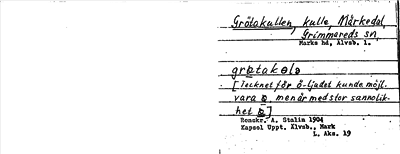 Grötakullen, kulle, Mårkedal,
Grimmareds sn,
Marks hd, Älvsb. l.
grøtakɵlə
[Tecknet för ö-ljudet kunde möjl.
vara , men är med stor sannolik-
het ]
Renskr. A. Stalin 1904
Kapsel Uppt. Älvsb., Mark
L. Aks. 19